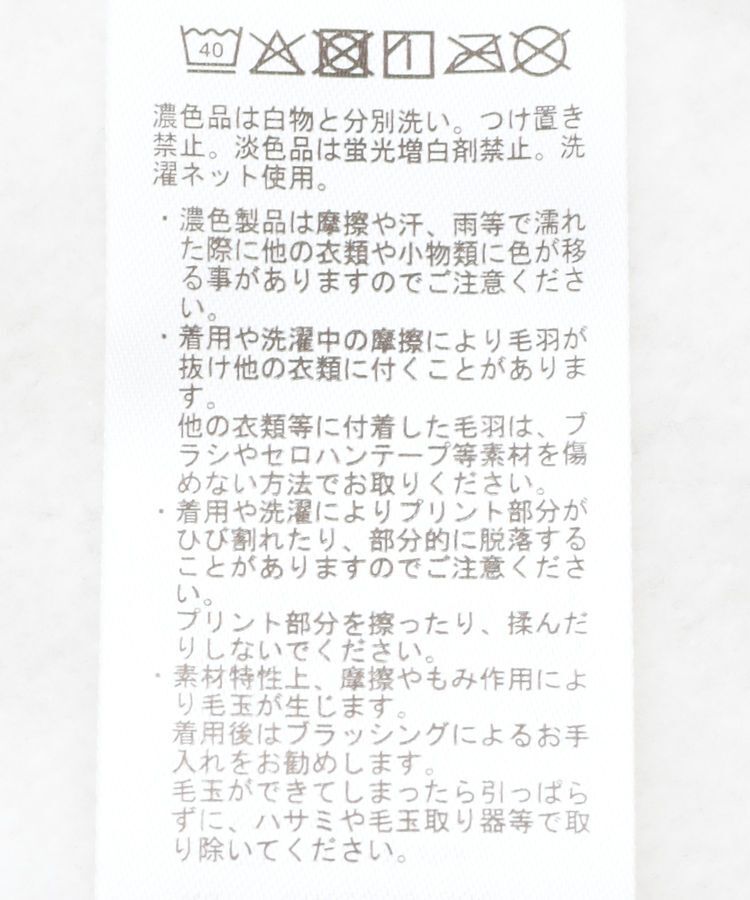 40
濃色品は白物と分別洗い。つけ置き
禁止。淡色品は蛍光増白剤禁止。洗
濯ネット使用。
・濃色製品は摩擦や汗、雨等で濡れ
た際に他の衣類や小物類に色が移
る事がありますのでご注意くださ
い。
・着用や洗濯中の摩擦により毛羽が
抜け他の衣類に付くことがありま
す。
他の衣類等に付着した毛羽は、ブ
ラシやセロハンテープ等素材を傷
めない方法でお取りください。
・着用や洗濯によりプリント部分が
ひび割れたり、部分的に脱落する
ことがありますのでご注意くださ
い。
プリント部分を擦ったり、揉んだ
りしないでください。
・素材特性上、摩擦やもみ作用によ
り毛玉が生じます。
着用後はブラッシングによるお手
入れをお勧めします。
毛玉ができてしまったら引っぱら
ずに、ハサミや毛玉取り器等で取
り除いてください。